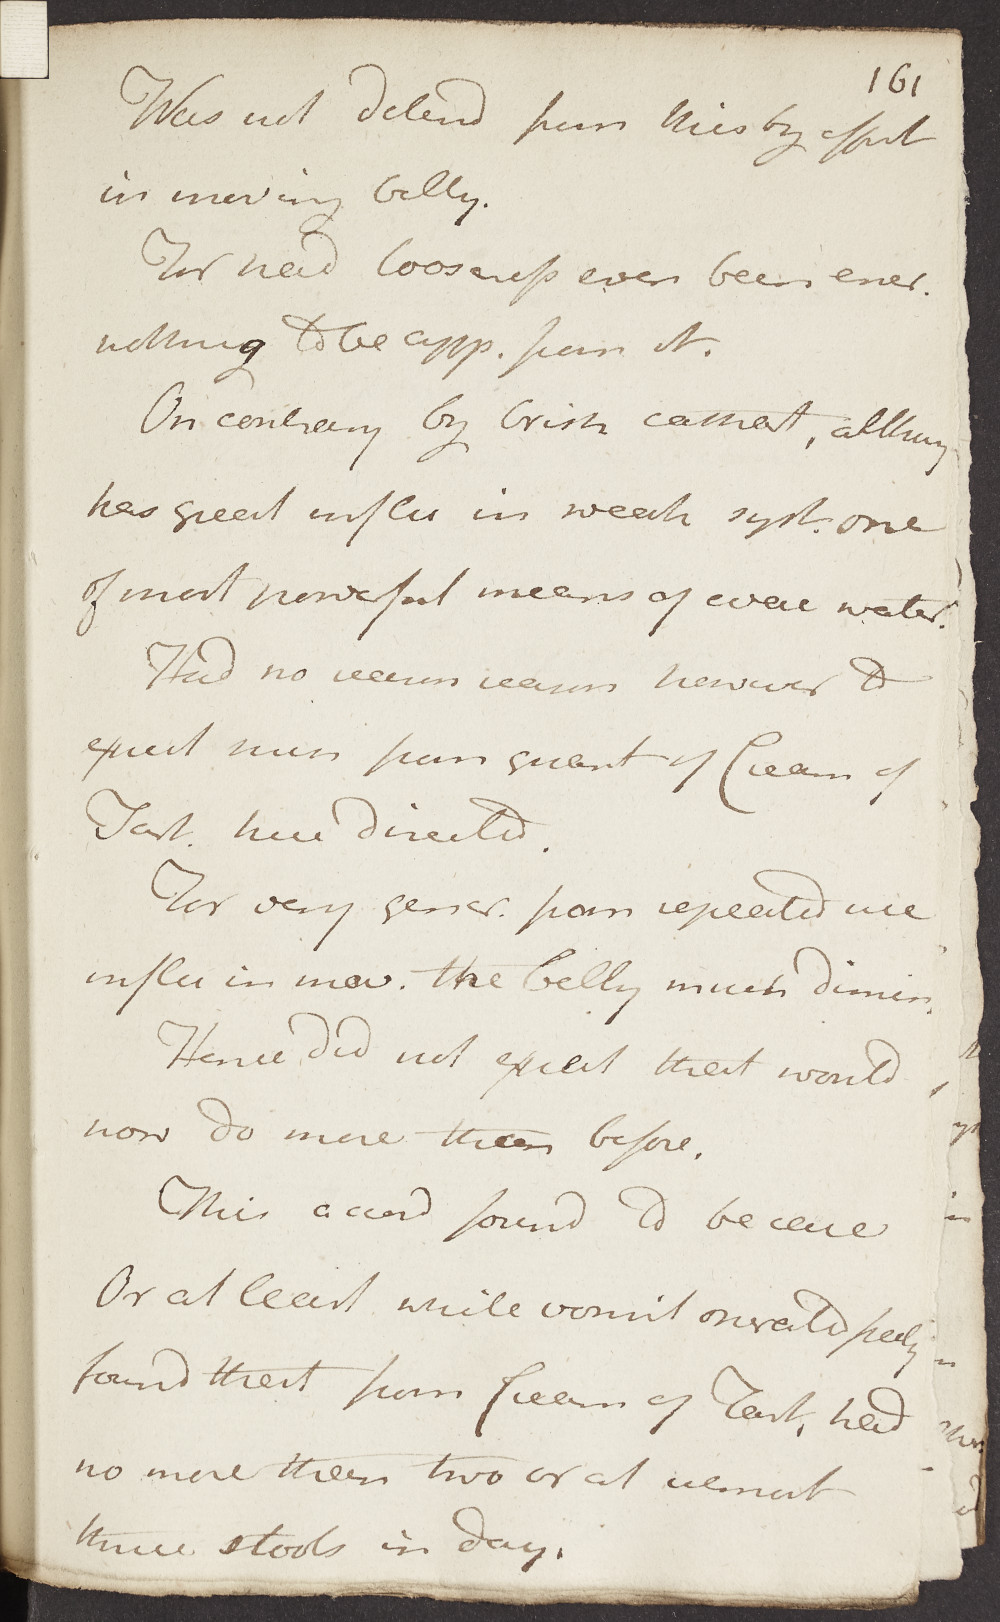 161
Was not deterd from this by effect
in moving belly.
For had looseness even been ener.
nothing to be app. from it.
On contrary by brisk cathart, altho
has great influ in weak syst. one
of most powerful means of evac water.
Had no reason reason however to
expect much from quant of Cream of
Tart. here directed.
For very gener. from repeated use
influ in mov. the belly much dimin.
Hence did not expect that would
now do more than before.
This accord found to be case
Or at least while vomit operated freely
found that from Cream of Tart, had
no more than two or at utmost
three stools in day.